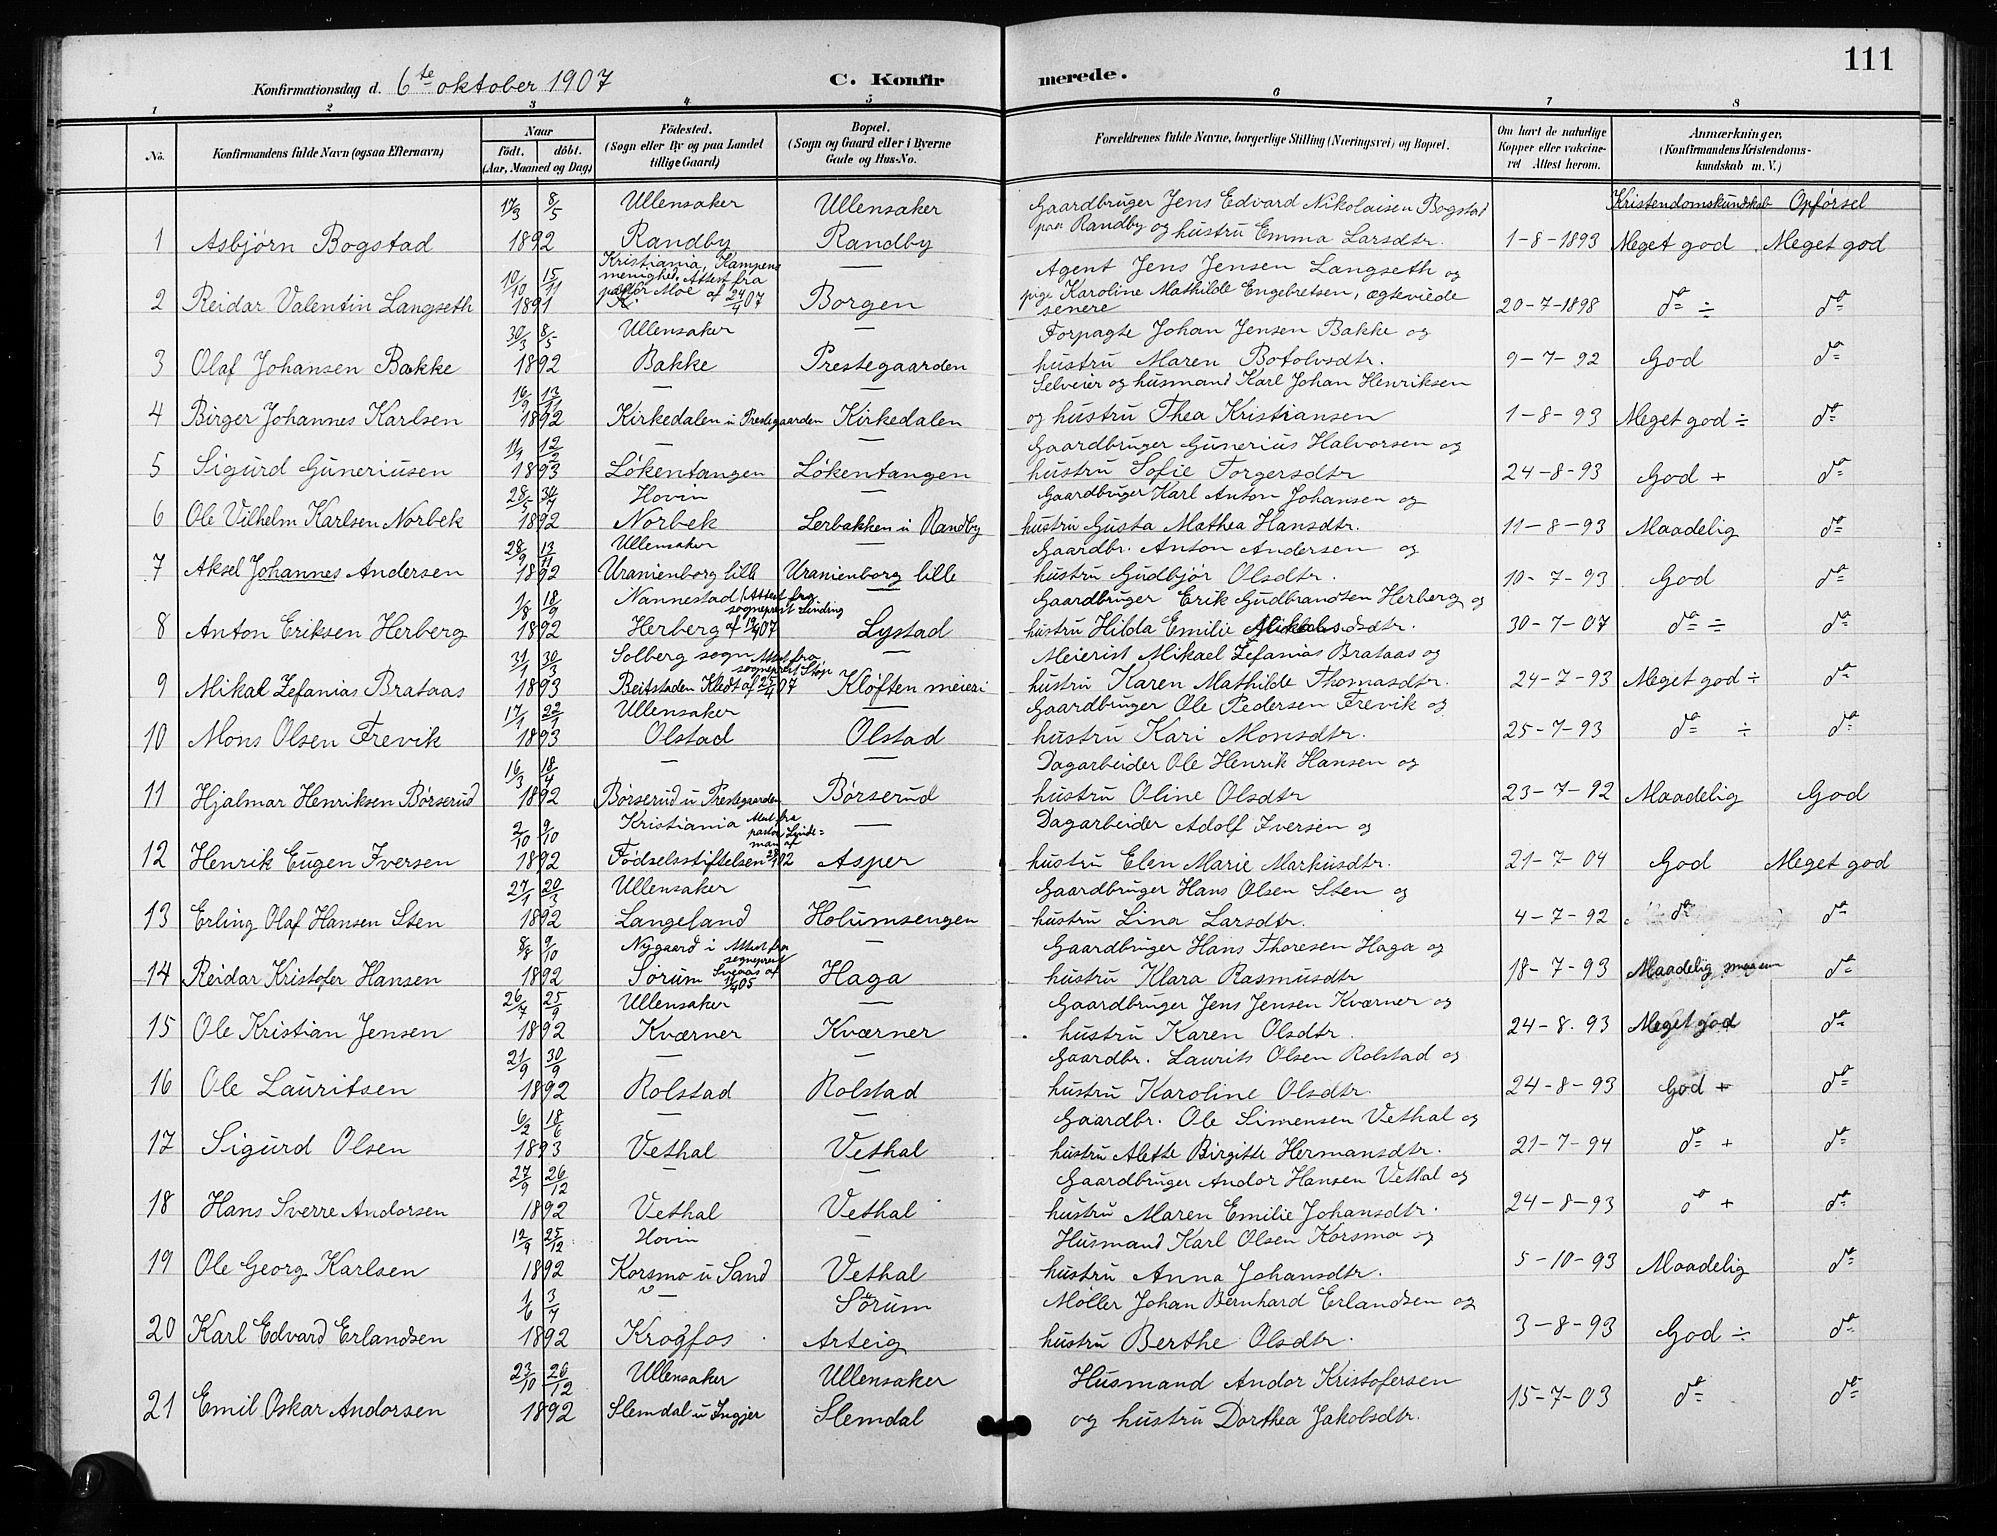 111
Konfirmationsdag d. 6te oktober 1907 C. Konfirmerede.
1 2 3 4 5 6 7 8
No. Konfirmandens fulde Navn (ogsaa Efternavn) Naar Födt. döbt. (Aar, Maaned og Dag) Födested. (Sogn eller By og paa Landet tillige Gaard) Bopæl. (Sogn og Gaard eller i Byerne Gade og Hus-No. Forældrenes fulde Navne, borgerlige Stilling (Næringsvei) og Bopæl. Om havt de naturlige Kopper eller vakcineret Attest herom. Anmærkninger, (Konfirmandens Kristendomskundskab m. V.)
Kristendomskundskab Opførsel
17/3 8/5 Ullensaker Ullensaker Gaardbruger Jens Edvard Nikolaisen Bogstad
1 Asbjørn Bogstad 1892 Randby Randby paa Randby og hustru Emma Larsdtr. 1-8-1893 Meget god Meget god
10/10 15/11 Kristiania, Kampens menighed. Attest fra — Agent Jens Jensen Langseth og
2 Reidar Valentin Langseth 1891 pastor Moe af 24/4 07 Borgen pige Karoline Mathilde Engebretsen, ægteviede senere 20-7-1898 do ÷ do
30/3 8/5 Ullensaker — Forpagte Johan Jensen Bakke og
3 Olaf Johansen Bakke 1892 Bakke Prestegaarden hustru Maren Botolvsdtr. 9-7-92 God do
16/9 13/11 — Selveier og husmand Karl Johan Henriksen
4 Birger Johannes Karlsen 1892 Kirkedalen u Prestegaarden Kirkedalen og hustru Thea Kristiansen 1-8-93 Meget god ÷ do
11/9 12/2 — — Gaardbruger Gunerius Halvorsen og
5 Sigurd Guneriusen 1893 Løkentangen Løkentangen hustru Sofie Torgersdtr 24-8-93 God + do
28/5 30/7 Hovin — Gaardbruger Karl Anton Johansen og
6 Ole Vilhelm Karlsen Norbek 1892 Norbek Lerbakken u Randby hustru Gusta Mathea Hansdtr. 11-8-93 Maadelig do
28/9 13/11 Ullensaker Gaardbr. Anton Andersen og
7 Aksel Johannes Andersen 1892 Uranienborg lille Uranienborg lille hustru Gudbjør Olsdtr. 10-7-93 God do
1/8 18/9 Nannestad Attest fra sogneprest Linding — Gaardbruger Erik Gudbrandsen Herberg og
8 Anton Eriksen Herberg 1892 Herberg af 19/4 07 Lystad hustru Hilda Emilie 30-7-07 do ÷ do
31/1 30/3 Solberg sogn Attest fra sogneprest Støp Meierist Mikael Zefanias Brataas og
9 Mikal Zefanias Brataas 1893 Beitstaden Kledt af 25/4 07 Kløften meieri hustru Karen Mathilde Thomasdtr. 24-7-93 Meget god ÷ do
17/1 22/1 Ullensaker — Gaardbruger Ole Pedersen Frevik og
10 Mons Olsen Frevik 1893 Olstad Olstad hustru Kari Monsdtr. 25-7-93 do ÷ do
16/3 18/4 — — Dagarbeider Ole Henrik Hansen og
11 Hjalmar Henriksen Børserud 1892 Børserud u Prestegaarden Børserud hustru Oline Olsdtr 23-7-92 Maadelig God
2/10 9/10 Kristiania Attest fra pastor Lindeman af — Dagarbeider Adolf Iversen og
12 Henrik Eugen Iversen 1892 Fødselsstiftelsen 02 Asper hustru Elen Marie Markusdtr. 21-7-04 God Meget god
27/1 20/3 Ullensaker — Gaardbruger Hans Olsen Sten og
13 Erling Olaf Hansen Sten 1892 Langeland Holumsengen hustru Lina Larsdtr. 4-7-92 do do
8/8 9/10 Nygaard i Attest fra sogneprest — Gaardbruger Hans Thoresen Haga og
14 Reidar Kristofer Hansen 1892 Sørum Sveaas af 05 Haga hustru Klara Rasmusdtr 18-7-93 Maadelig do
26/7 25/9 Ullensaker — Gaardbruger Jens Jensen Kværner og
15 Ole Kristian Jensen 1892 Kværner Kværner hustru Karen Olsdtr. 24-8.93 Meget god do
21/9 30/9 — — Gaardbr. Laurits Olsen Rolstad og
16 Ole Lauritsen 1892 Rolstad Rolstad hustru Karoline Olsdtr. 24-8-93 God + do
6/2 18/6 — — Gaardbr. Ole Simensen Vethal og
17 Sigurd Olsen 1893 Vethal Vethal hustru Alette Birgitte Hermansdtr. 21-7-94 do + do
27/9 26/12 — — Gaardbruger Andor Hansen Vethal og
18 Hans Sverre Andorsen 1892 Vethal Vethal hustru Maren Emilie Johansdtr. 24-8-93 do + do
12/9 25/12 Hovin — Husmand Karl Olsen Korsmo og
19 Ole Georg Karlsen 1892 Korsmo u Sand Vethal hustru Anna Johansdtr. 5-10-93 Maadelig do
1/6 3/7 — Sørum Møller Johan Bernhard Erlandsen og
20 Karl Edvard Erlandsen 1892 Krogfos Arteig hustru Berthe Olsdtr. 3-8-93 God ÷ do
23/10 26/12 Ullensaker Ullensaker Husmand Andor Kristofersen
21 Emil Oskar Andorsen 1892 Slemdal u Ingjer Slemdal og hustru Dorthea Jakobsdtr. 15-7-03 do do